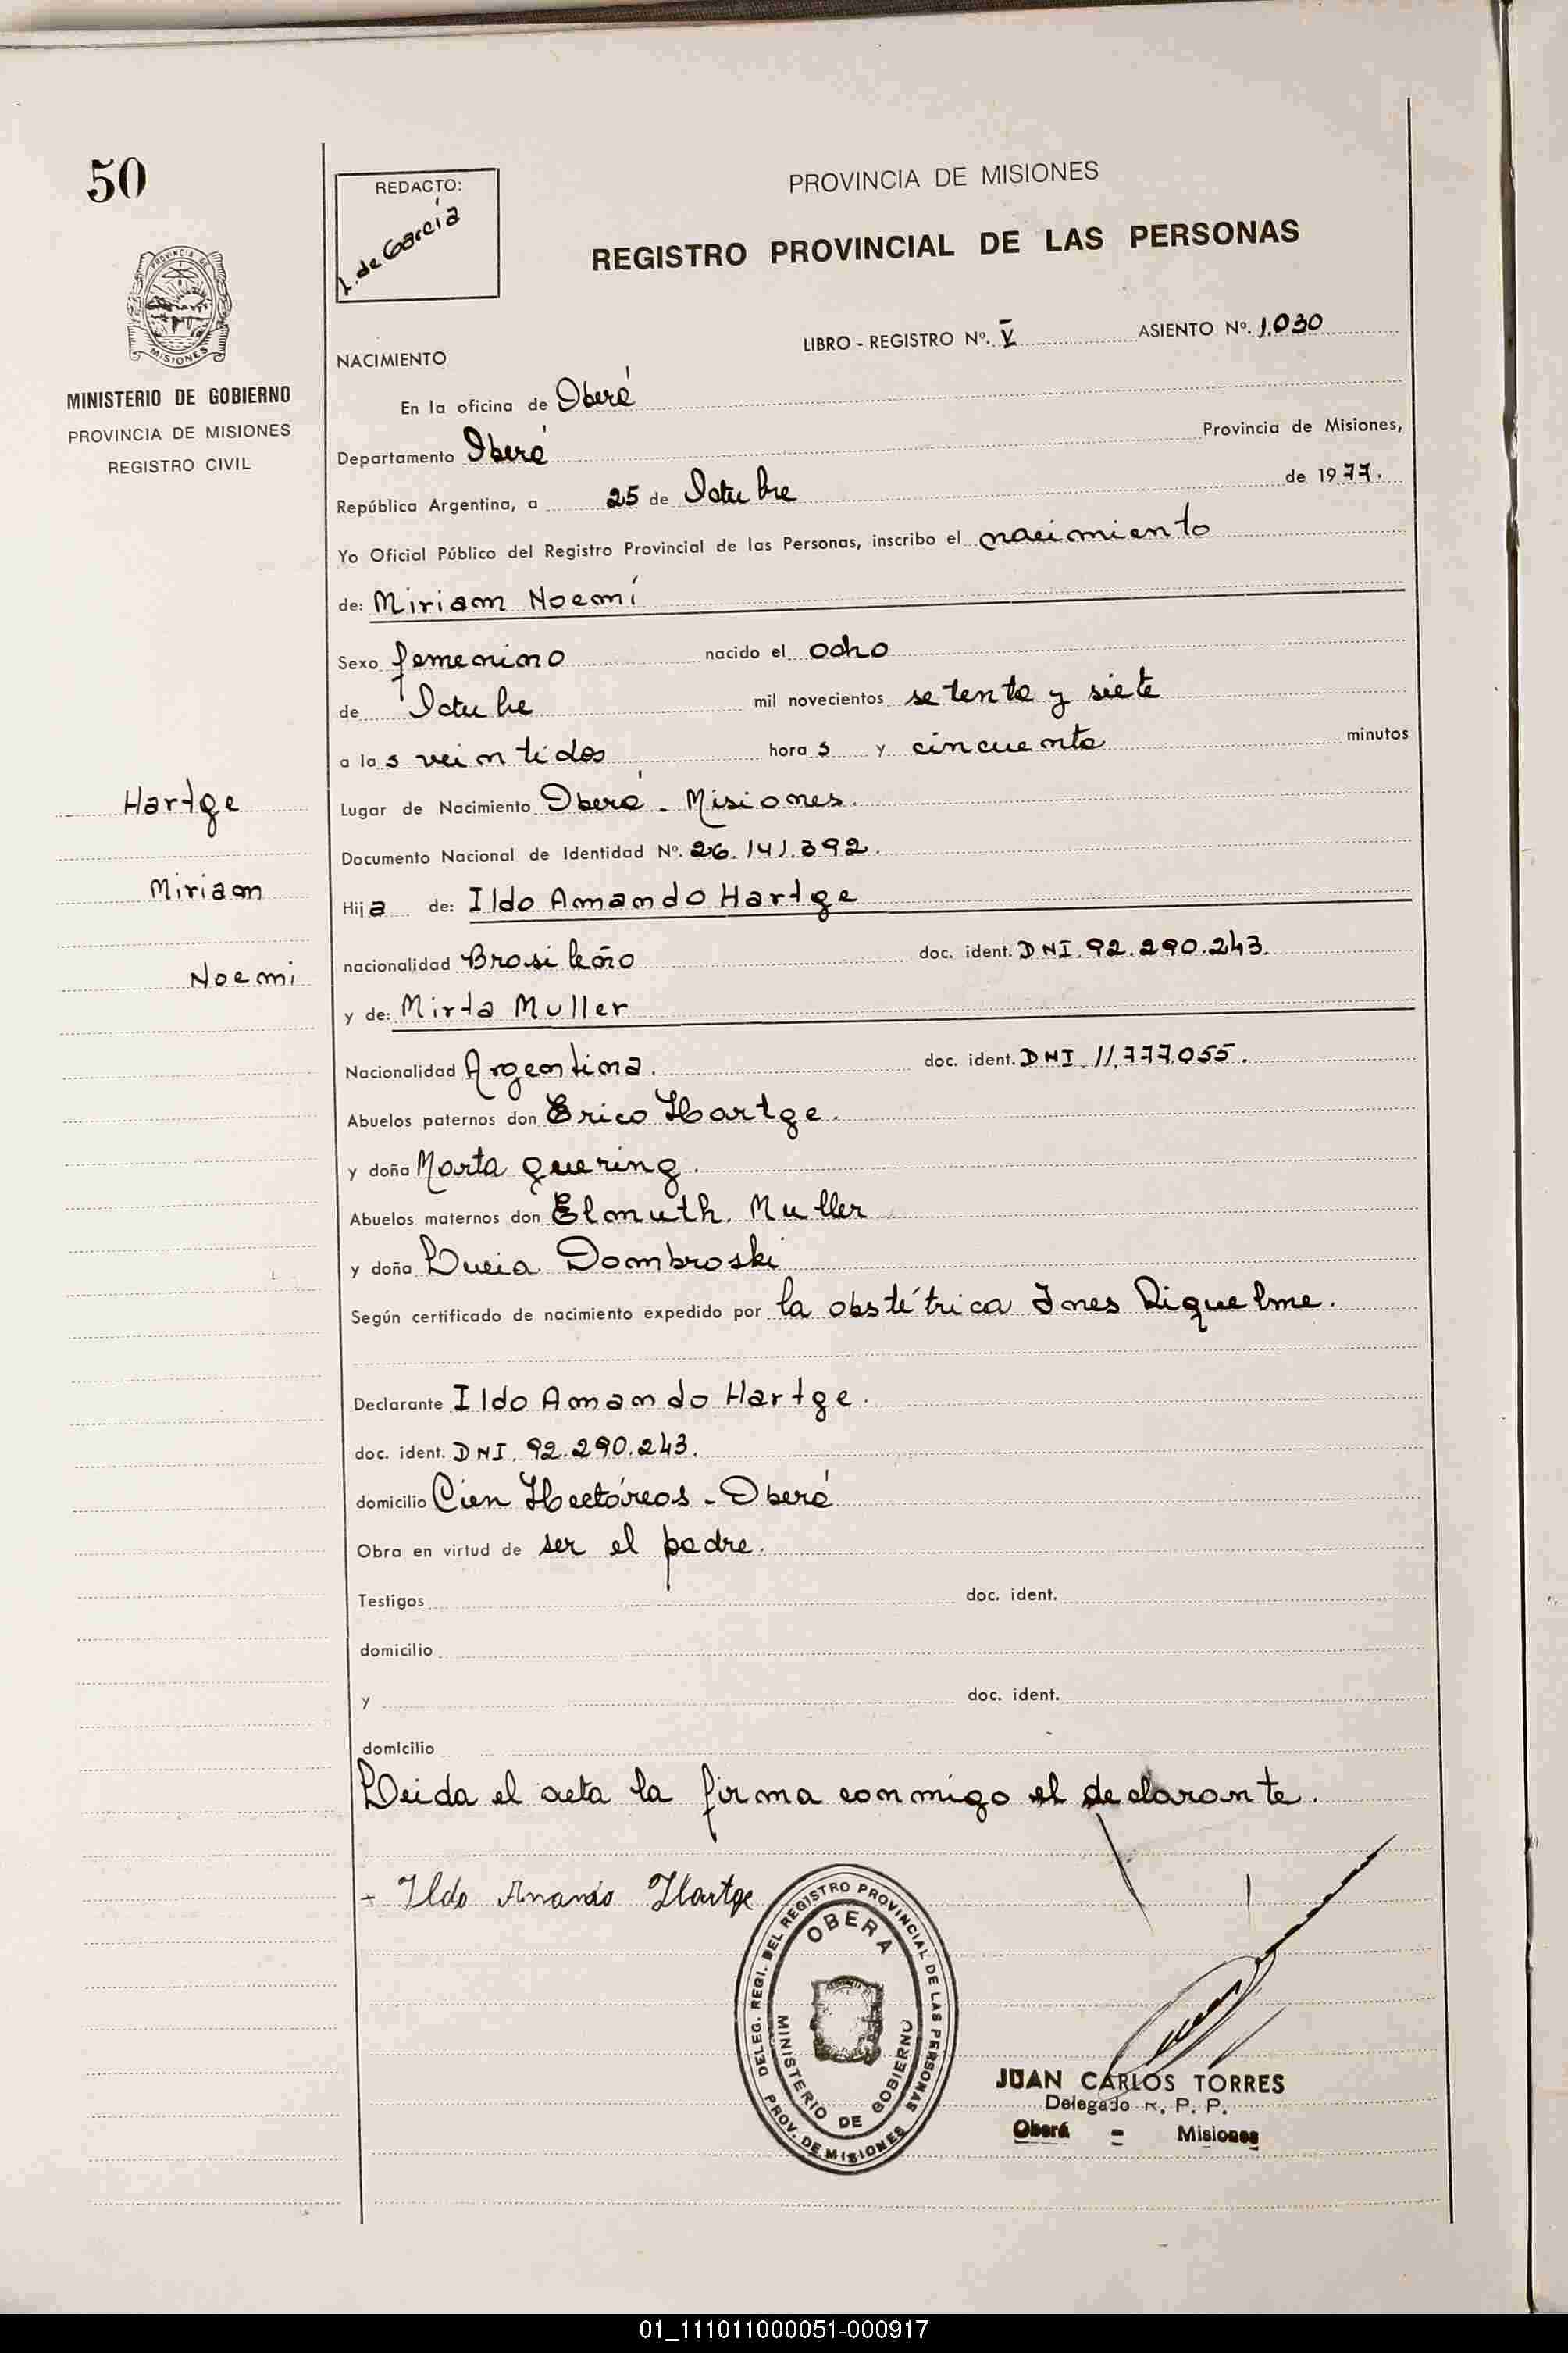 50
PROVINCIA DE MISIONES
MINISTERIO DE GOBIERNO
PROVINCIA DE MISIONES
REGISTRO CIVIL
REDACTO:
L. de García
PROVINCIA DE MISIONES
REGISTRO PROVINCIAL DE LAS PERSONAS
LIBRO - REGISTRO Nº. V ASIENTO Nº. 1.030
NACIMIENTO
En la oficina de Oberá
Departamento Oberá Provincia de Misiones,
República Argentina, a 25 de Octubre de 1977.
Yo Oficial Público del Registro Provincial de las Personas, inscribo el nacimiento
de: Miriam Noemí
Sexo femenino nacido el ocho
de Octubre mil novecientos setenta y siete
a las veintidos horas y cincuenta minutos
Hartge
Lugar de Nacimiento Oberá - Misiones.
Documento Nacional de Identidad Nº. 26.141.392.
Miriam
Hija de: Ildo Amando Hartge
Noemi
nacionalidad Brasileño doc. ident. DNI. 92.290.243.
y de: Mirta Muller
Nacionalidad Argentina. doc. ident. DNI. 11.777.055.
Abuelos paternos don Erico Hartge.
y doña Marta Quering.
Abuelos maternos don Elmuth. Muller
y doña Lucia Dombroski
Según certificado de nacimiento expedido por la obstétrica Ines Riquelme.
Declarante Ildo Amando Hartge.
doc. ident. DNI. 92.290.243.
domicilio Cien Hectáreas - Oberá
Obra en virtud de ser el padre.
Testigos doc. ident.
domicilio
y doc. ident.
domicilio
Leida el acta la firma conmigo el declarante.
Ildo Amando Hartge
DELEG. REGI. DEL REGISTRO PROVINCIAL DE LAS PERSONAS
OBERA
MINISTERIO DE GOBIERNO
PROV. DE MISIONES
JUAN CARLOS TORRES
Delegado R. P. P.
Oberá - Misiones
01_111011000051-000917